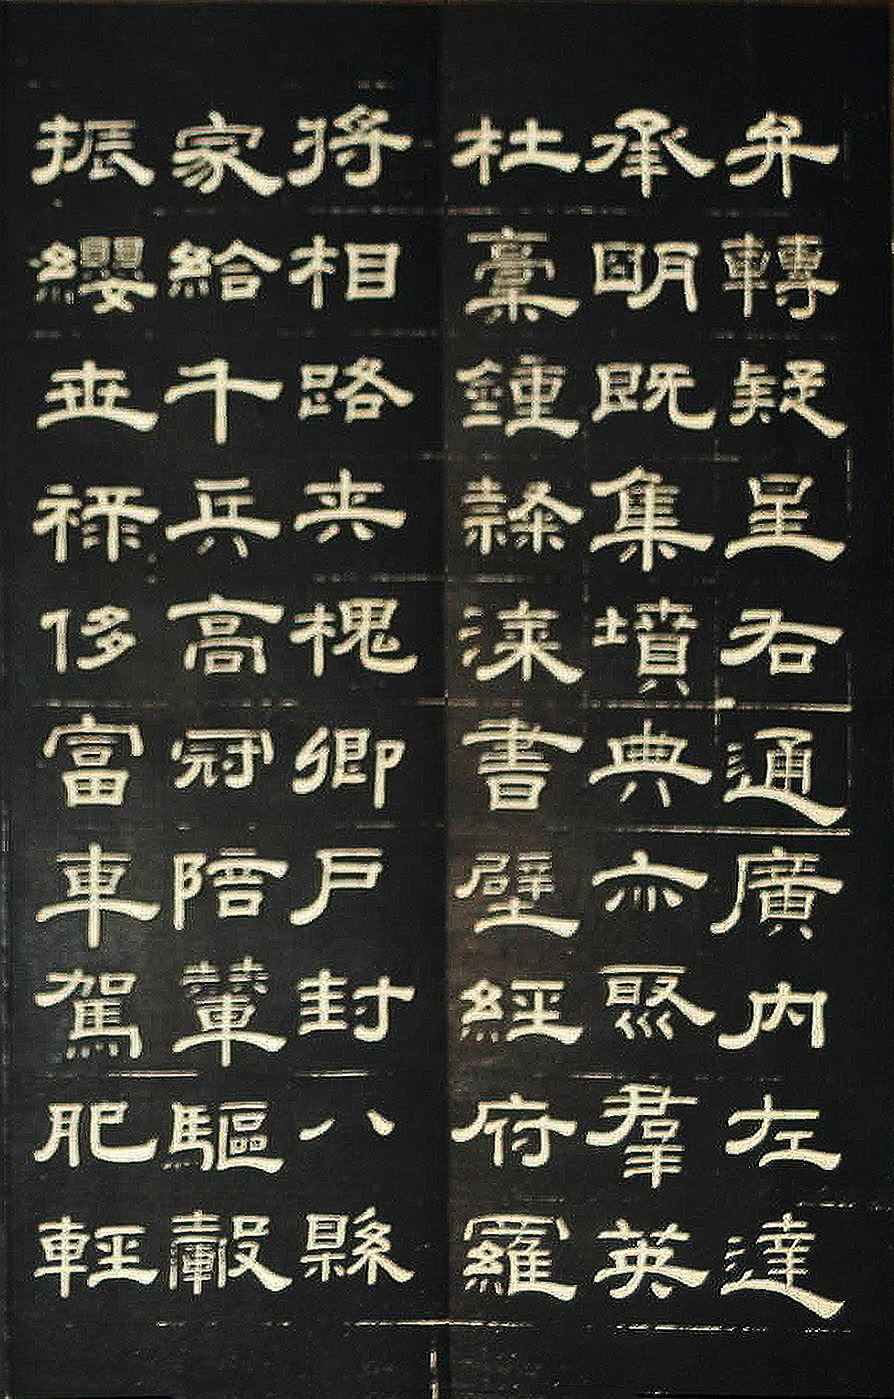 弁轉疑星右通廣内左達
承明既集墳典亦聚羣英
杜稾鍾隸漆書壁經府羅
將相路夾槐卿戶封八縣
家給千兵高冠陪輦驅轂
振纓世祿侈富車駕肥輕